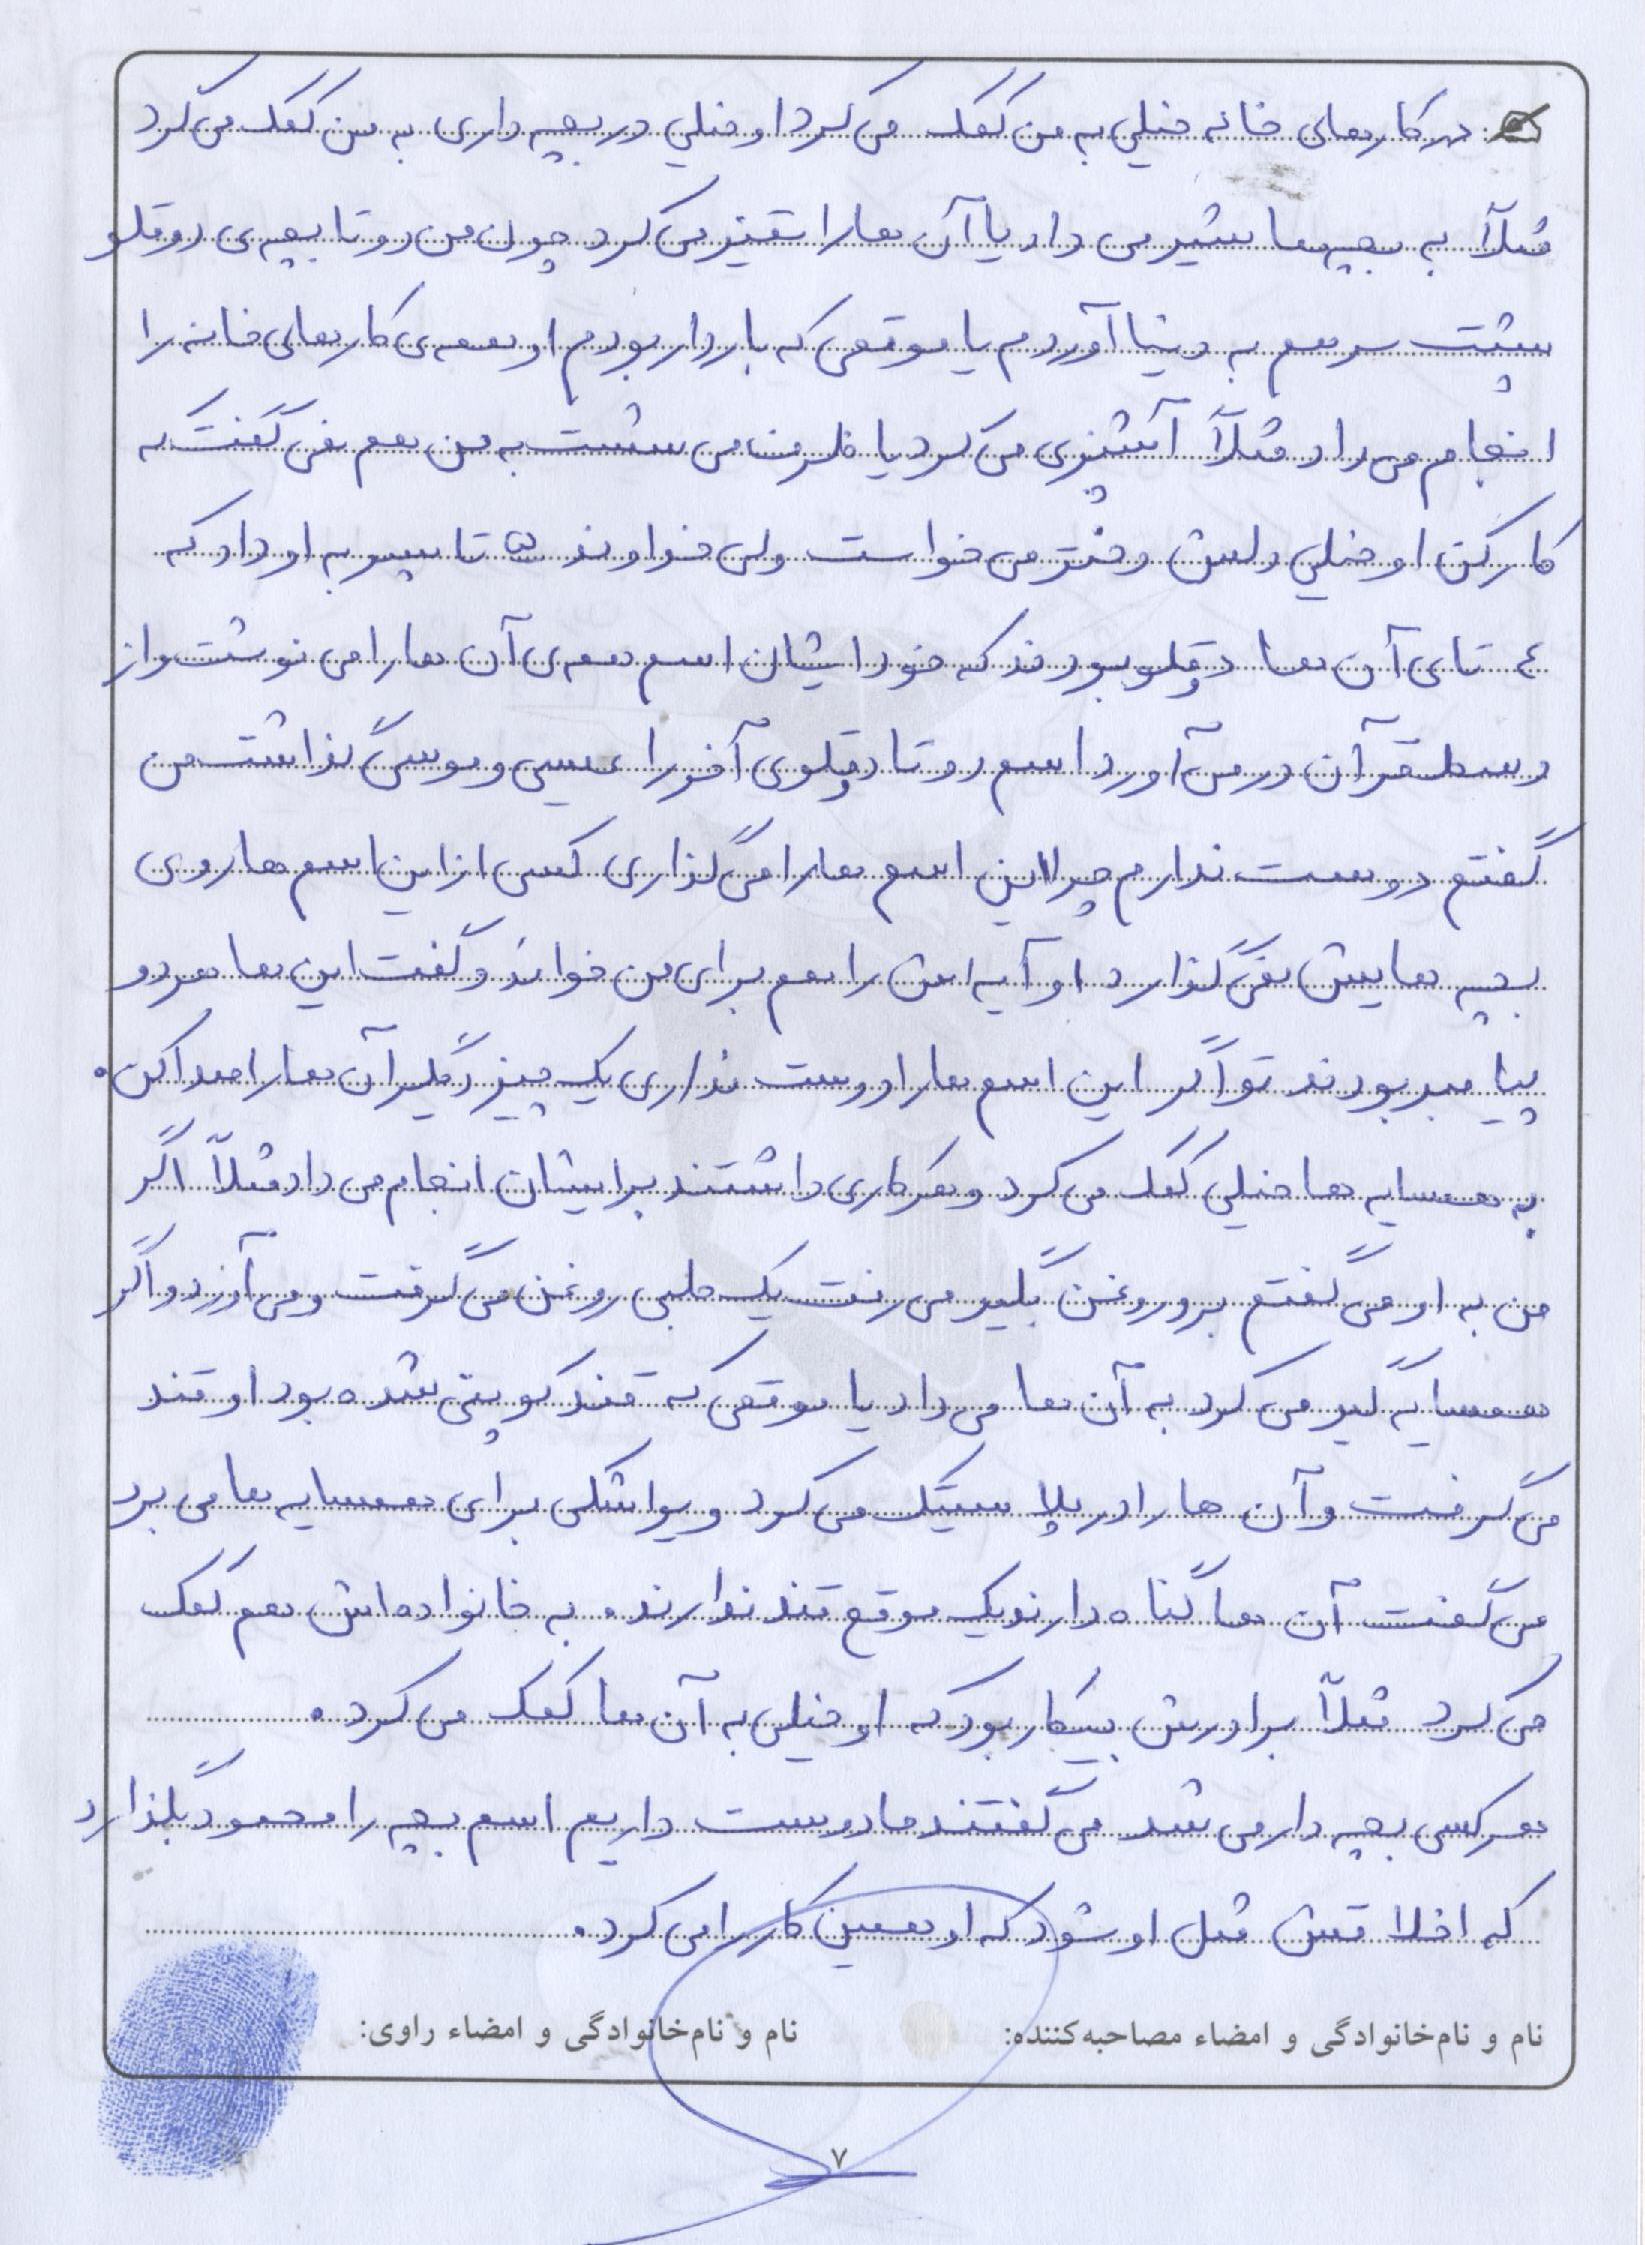 در کارهای خانه خیلی به من کمک می کرد او خیلی در بچه داری به من کمک می کرد
مثلاً به بچه ها شیر می داد یا آن ها را تمیز می کرد چون من دو تا بچه ی دوقلو
پشت سر هم به دنیا آوردم یا موقعی که باردار بودم او همه ی کارهای خانه را
انجام می داد مثلاً آشپزی می کرد یا ظرف می شست به من هم نمی گفت که
کار کن او خیلی دلش دختر می خواست ولی خداوند ۵ تا پسر به او داد که
٤ تای آن ها دوقلو بودند که خود ایشان اسم همه ی آن ها را می نوشت و از
وسط قرآن در می آورد اسم دو تا دوقلوی آخر را عیسی و موسی گذاشت من
گفتم دوست ندارم چرا این اسم ها را می گذاری کسی از این اسم ها روی
بچه هایش نمی گذارد او آیه اش را هم برای من خواند و گفت این ها هر دو
پیامبر بودند تو اگر این اسم ها را دوست نداری یک چیز دگیر آن ها را صدا کن.
به همسایه ها خیلی کمک می کرد و هر کاری داشتند برایشان انجام می داد مثلاً اگر
من به او می گفتم برو روغن بگیر می رفت یک حلبی روغن می گرفت و می آورد و اگر
همسایه گیر می کرد به آن ها می داد یا موقعی که قند کوپنی شده بود او قند
می گرفت و آن ها را در پلاستیک می کرد و یواشکی برای همسایه ها می برد
می گفت آن ها گناه دارند یک موقع قند ندارند. به خانواده اش هم کمک
می کرد مثلاً برادرش بیکار بود که او خیلی به آن ها کمک می کرد.
هر کسی بچه دار می شد می گفتند ما دوست داریم اسم بچه را محمود بگذارد
که اخلاقش مثل او شود که او همین کار را می کرد.
نام و نام‌خانوادگی و امضاء مصاحبه‌کننده: نام و نام‌خانوادگی و امضاء راوی:
۷